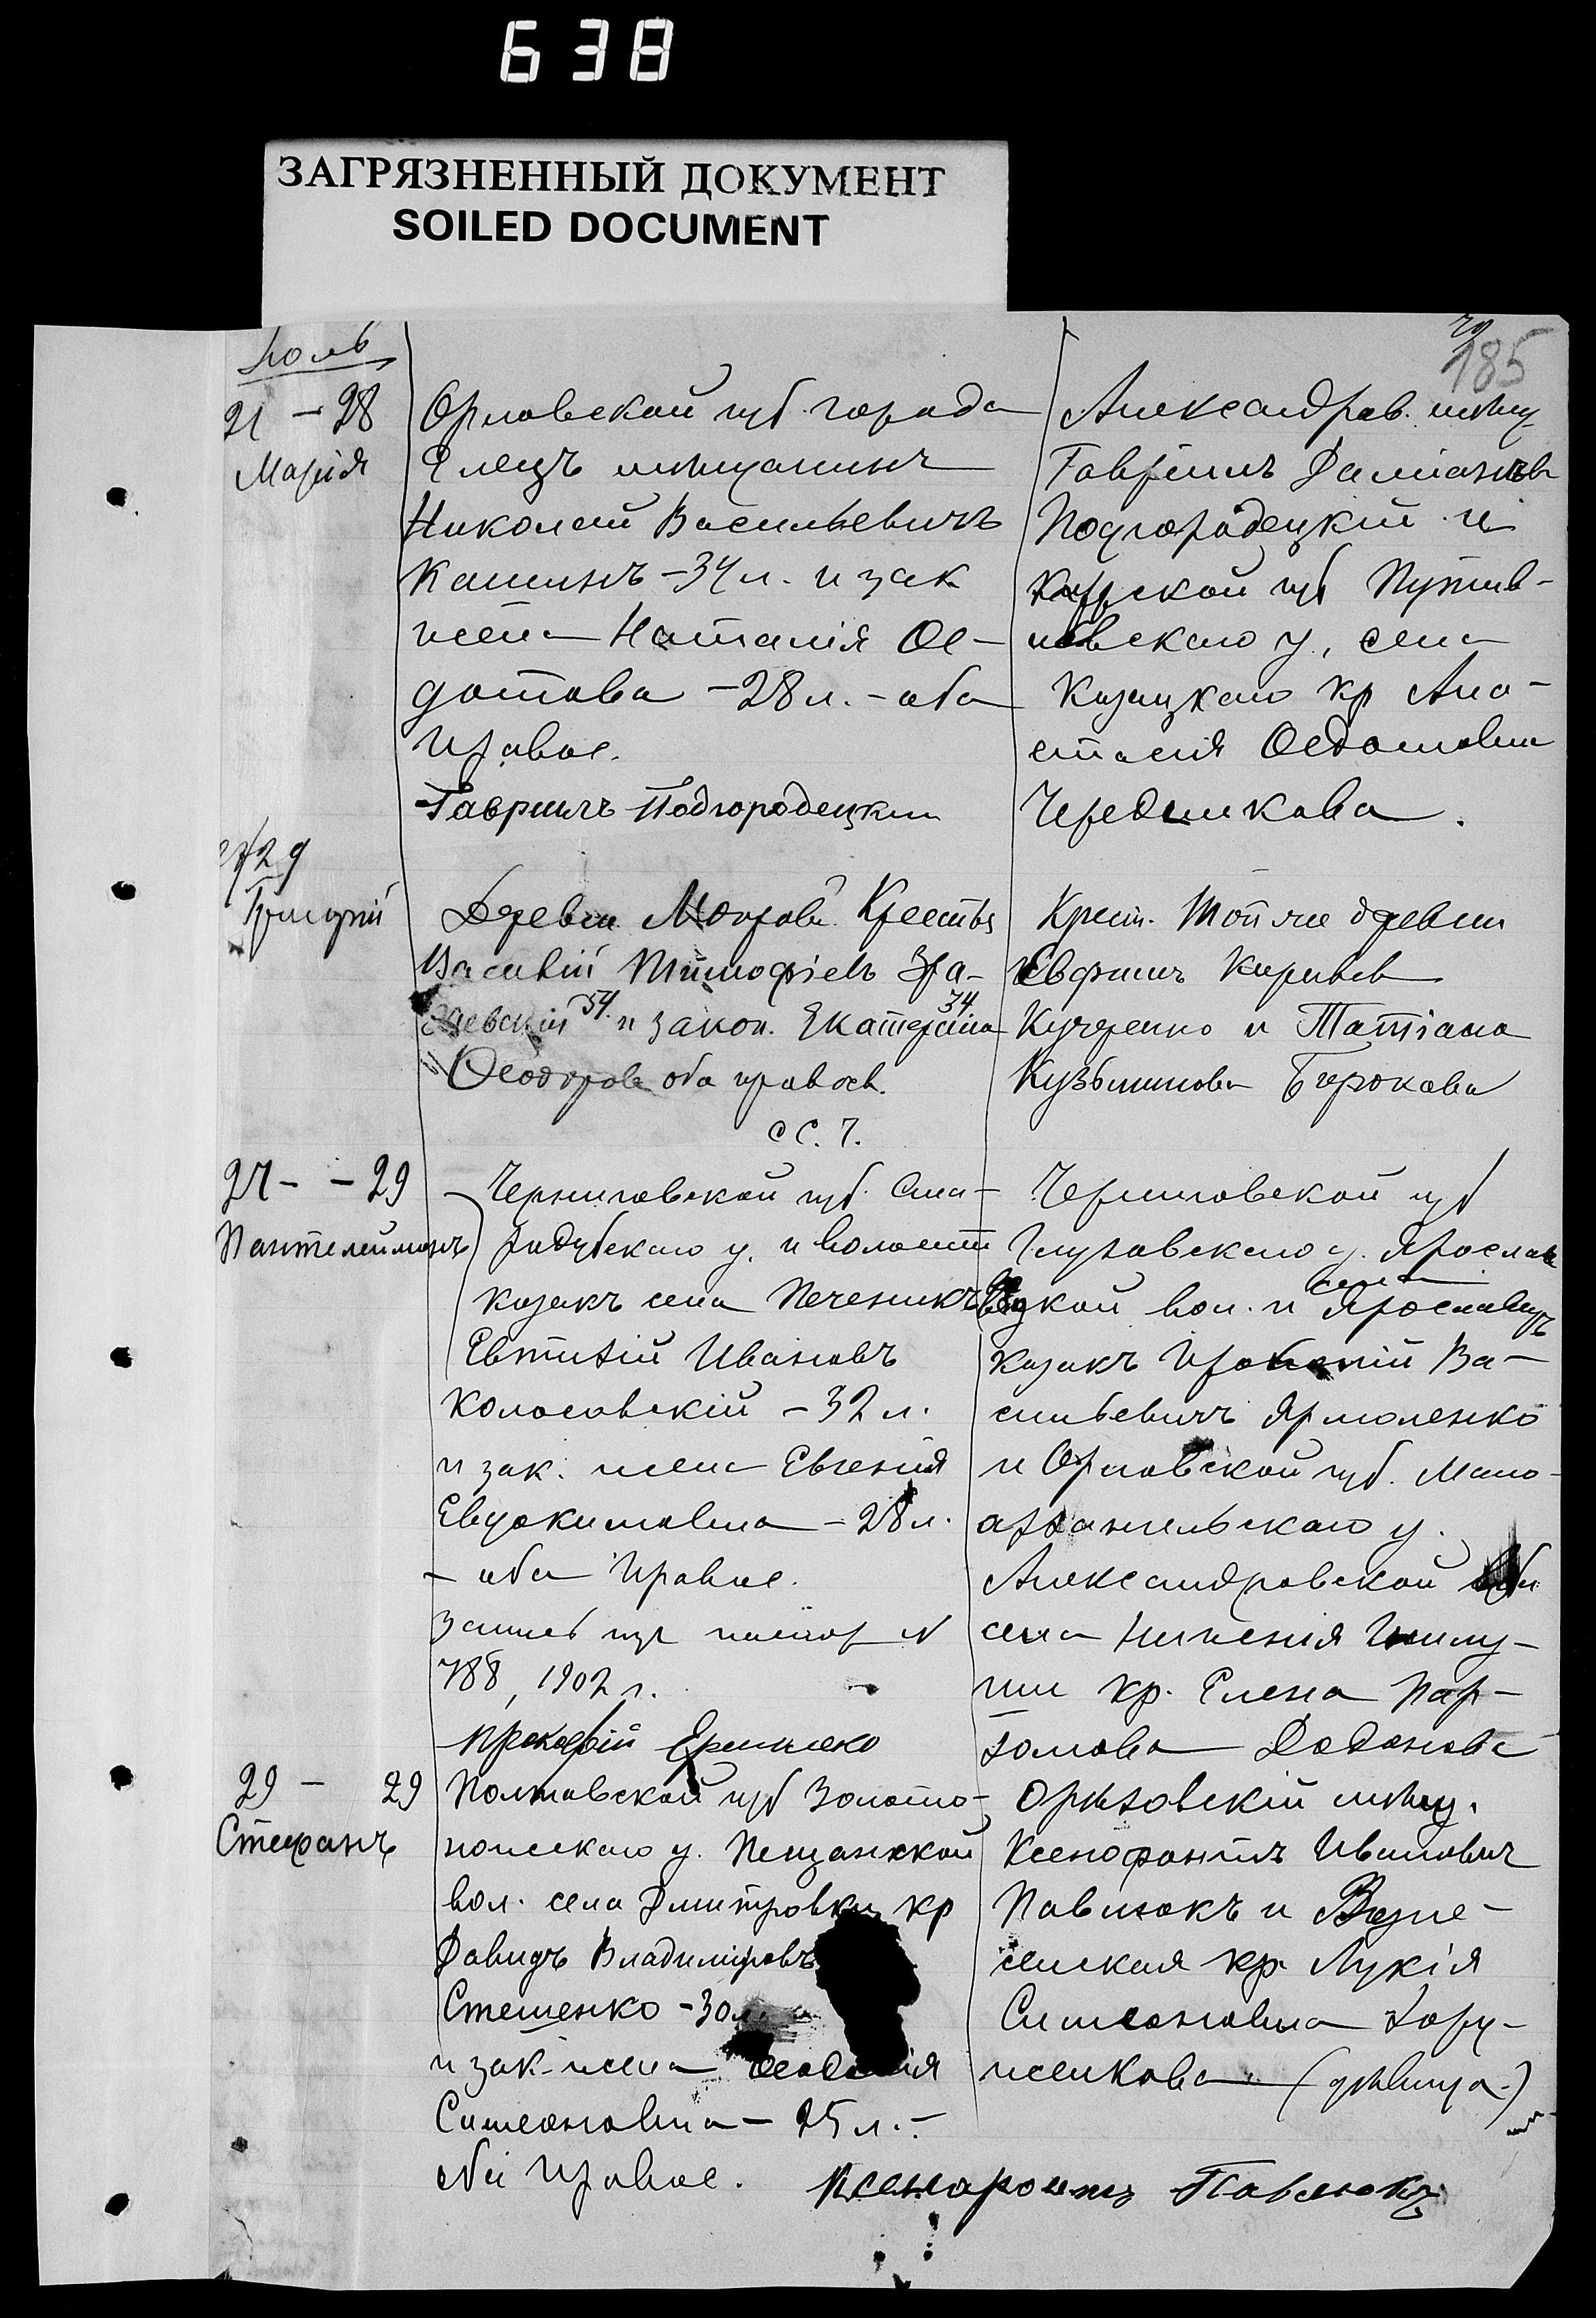 638
ЗАГРЯЗНЕННЫЙ ДОКУМЕНТ
SOILED DOCUMENT
185
Іюль
21 - 28
Марія
Орловской губ. города
Елецъ мѣщанинъ
Николай Васильевичъ
Кашинъ - 34 л. и зак
жена Наталія Ѳе-
дотова - 28 л. - оба
правос.
Гавріилъ Подгородецкій
Александров. мѣщ.
Гавріилъ Даміановъ
Подгородецкій и
Курской губ Путив-
льскаго у., села
Казацкаго кр Ана-
стасія Ѳедотовна
Чередникова.
29
Григорій
Деревни Мокрой Крестья
Василій Тимофіевъ
54 и закон. Екатерина 34
Ѳеодорова оба правосл.
Крест. Той же деревни
Евфимъ
Кучеренко и Татіана
Кузьминова Бирюкова
С С. 7.
27 - - 29
Пантелеймонъ
Черниговской губ. Ста-
родубскаго у. и волости
козакъ села Печеникъ
Евтихій Ивановъ
Колосовскій - 32 л.
и зак. жена Евгенія
Евдокимовна - 28 л.
- оба Правос.
Запись пр паспор N
788, 1902 г.
Черниговской губ
Глуховскаго у. Ярослав
вецкой вол. и села Ярославецъ
казакъ Прокопій Ва-
сильевичъ Ярмоленко
и Орловской губ. Мало-
архангельскаго у.
Александровской
села Нижнія Гнилу-
ши кр. Елена Пар-
Додонова
29 - 29
Стефанъ
Полтавской губ Золото-
ношскаго у. Пещанской
вол. села Дмитровки кр
Давидъ Владиміровъ
Стешенко - 30 л.
и зак. жена
Симеоновна - 25 л. -
оба Правос.
Орѣховскій мѣщ.
Ксенофонтъ Ивановичъ
Павлюкъ и Возне-
сенская кр. Лукія
Симеоновна Хору-
женкова (дѣвица)
Ксенофонтъ Павлюкъ